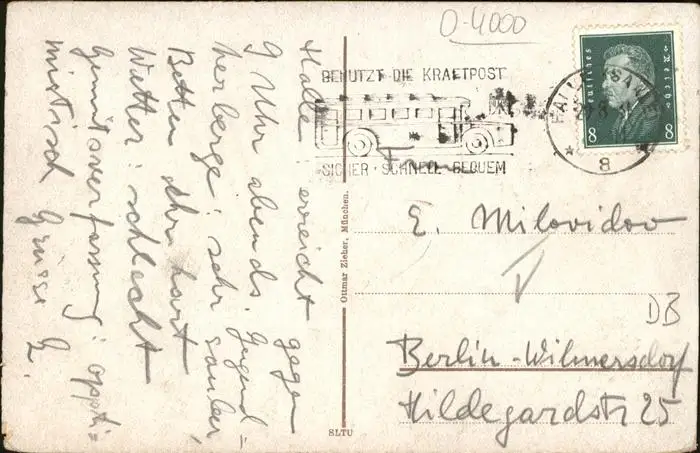 O-4000
BENUTZT DIE KRAFTPOST
SICHER · SCHNELL · BEQUEM
Deutsches Reich
8 8
HALLE (SAALE)
* 8
Halle erreicht gegen
9 Uhr abends. Jugend=
herberge: sehr sauber,
Betten sehr hart
Wetter: schlecht
Gemütsverfassung: opti=
mistisch Grüsse
Frau
E. Milovidov
DB
Berlin-Wilmersdorf
Hildegardstr 25
Ottmar Zieher, München.
8LTU